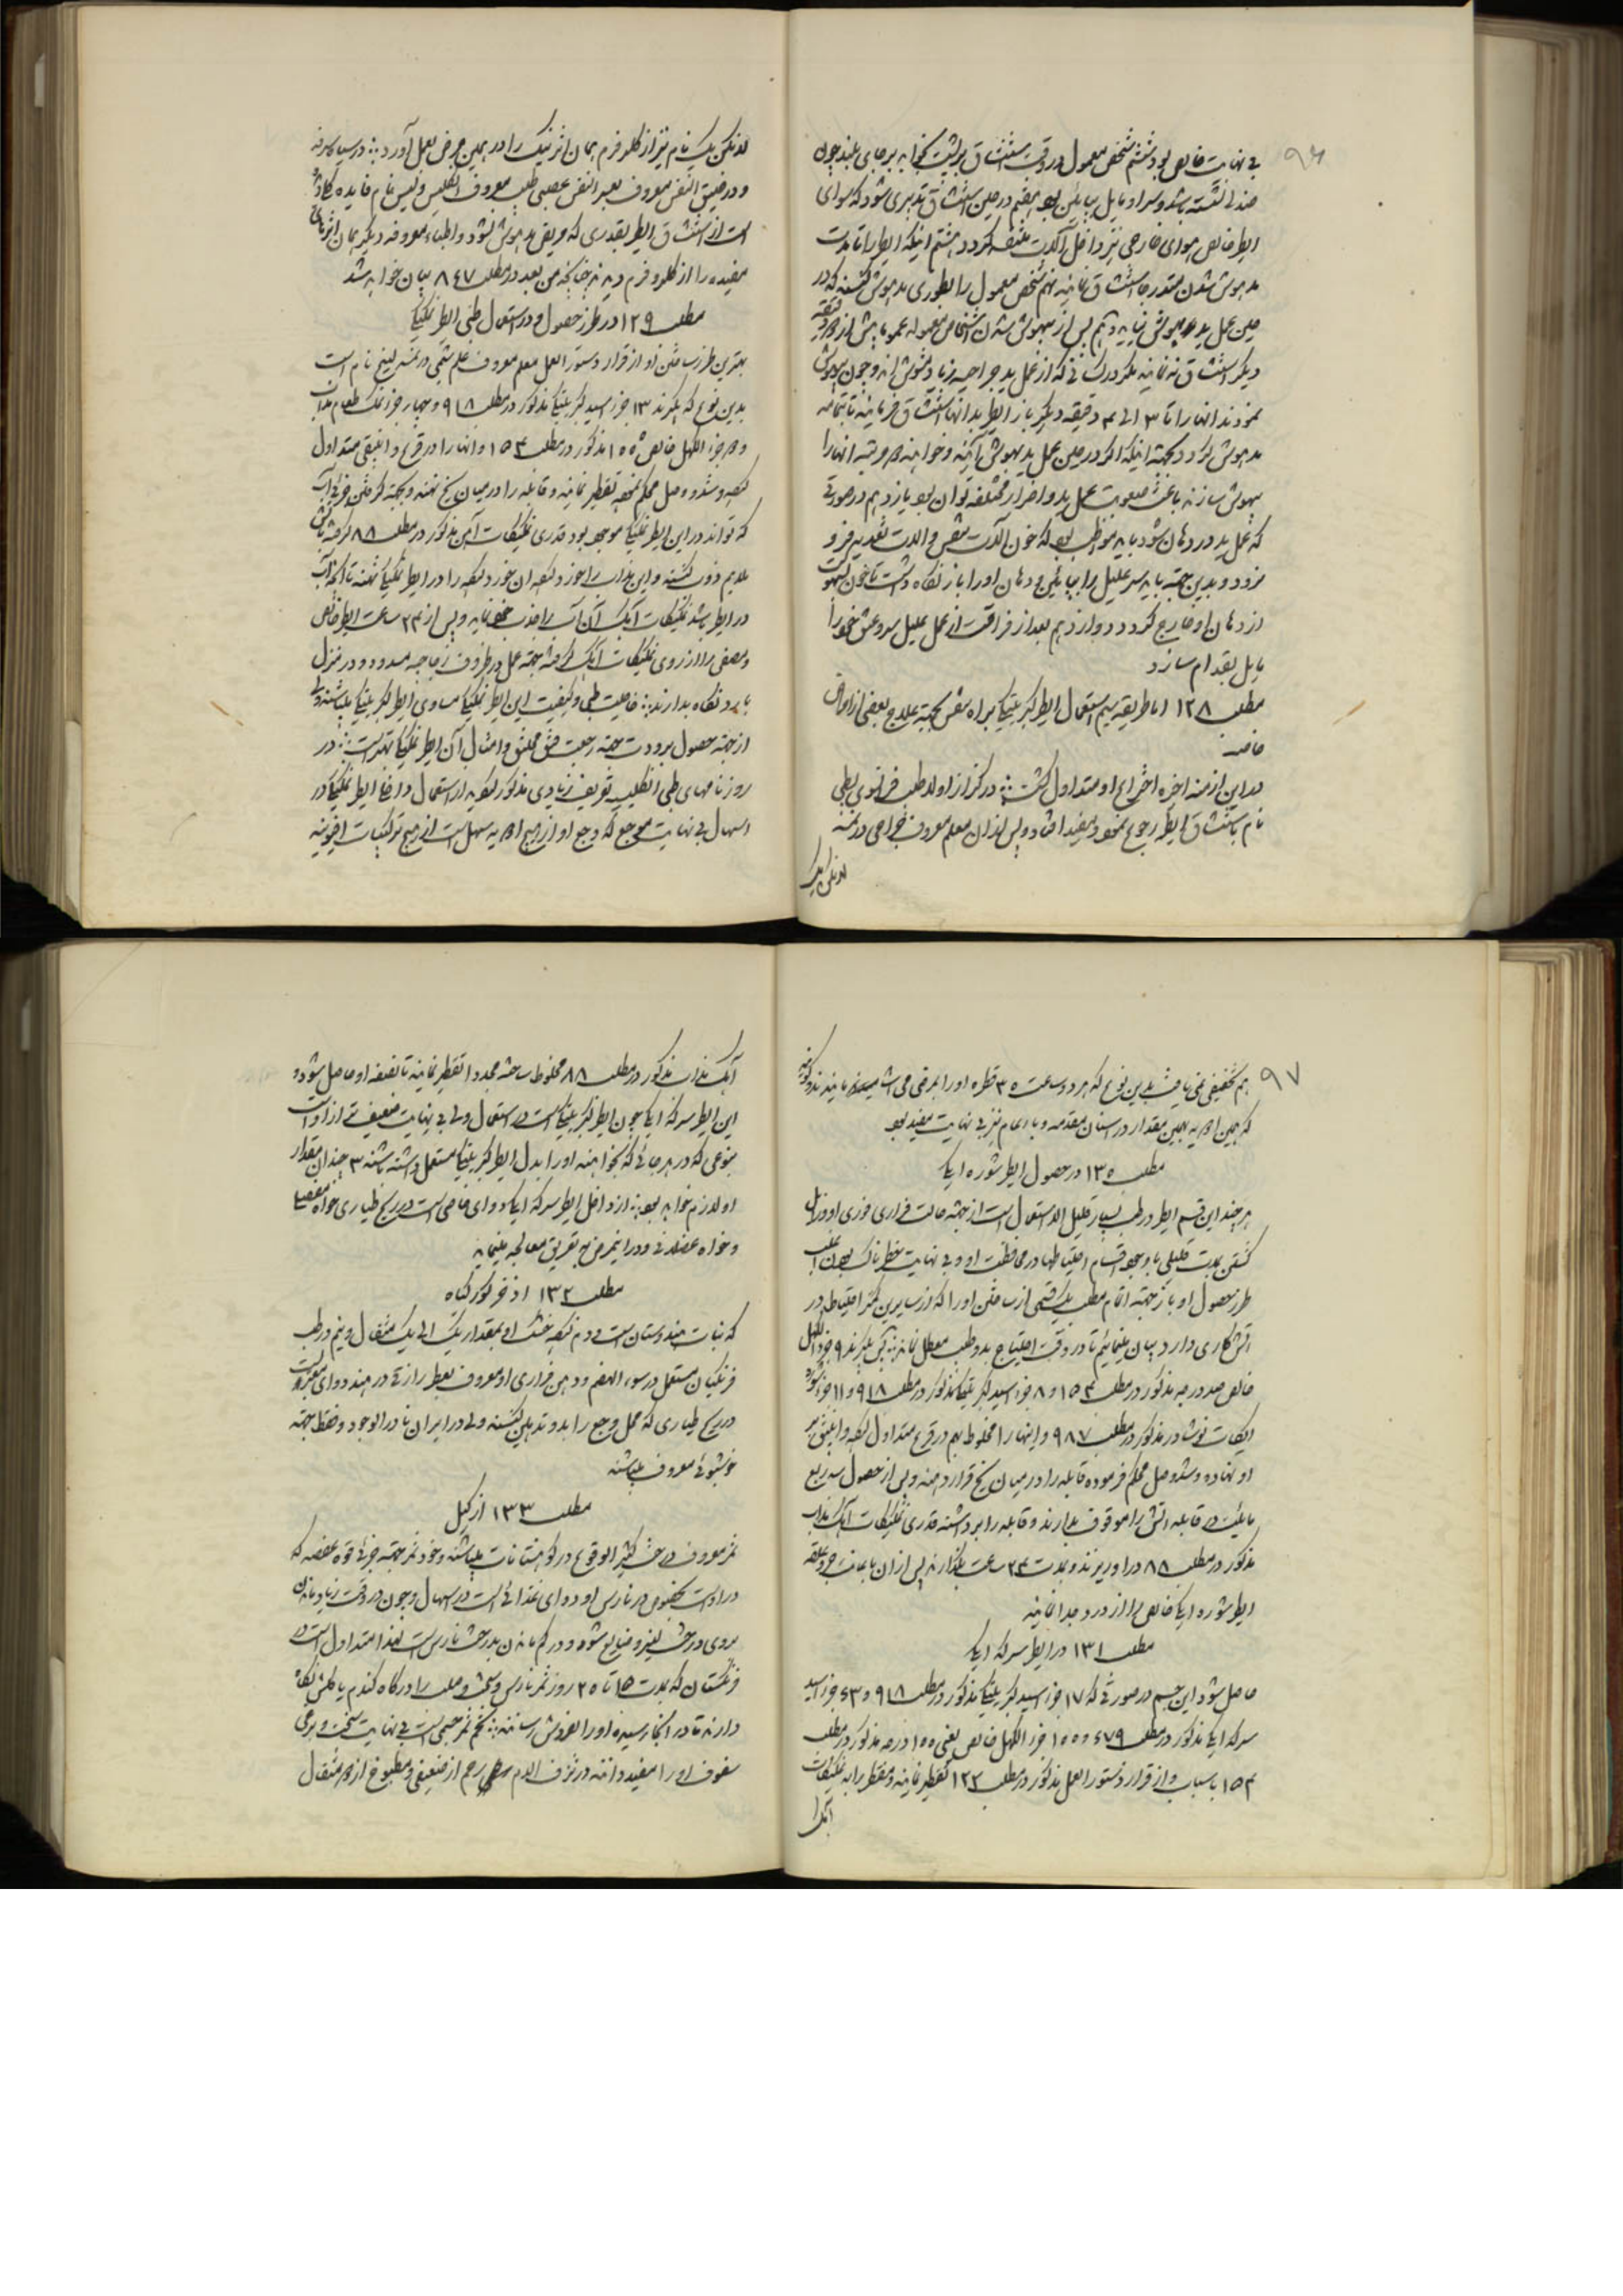 ۹۶
بی نهایت خالص بود ششم شخص معمول در وقت استنشاق بر پشت بخوابد بر جای بلند چون
صندلی نشسته باشد و سر او مایل بپایین بود هفتم در حین استنشاق تدبیری شود که سوای
ایطر خالص هوای خارجی نیز داخل آلات تنفس گردد هشتم اینکه ایطر را تا مدت
مدهوش شدن ستور جا استنشاق نمایند نهم شخص معمول را بطوری مدهوش کنند که در
حین عمل ید بهوش نیاید دهم پس از بیهوش شدن اشخاص معموله عموما بیش از دقیقه
دیگر استنشاق نه نمایند مگر در کسانی که از عمل ید جراحیه زیاد مشوش اند و چون بیهوش
نمودند انها را تا ۳ الی ۴ دقیقه دیگر باز ایطر بدانها استنشاق فرمایند تا بتمامه
مدهوش گردد بجهته اینکه اگر در حین عمل ید بهوش آیند و خواهند هر مرتبه انها را
بیهوش سازند باعث صعوبت عمل ید و اضرار مختلفه توان بود یازدهم در صورتی
که عمل ید در دهان شود باید مواظب بود که خون آلات تنفس و الات تغذیه فرو
نرود و بدین جهته باید سر علیل را بپایین و دهان او را باز نگاه داشت تا خون بسهولت
از دهان او خارج گردد دوازدهم بعد از فراغت از عمل علیل سر و عنق خود را
مایل بقدام سازد
مطلب ۱۲۸ اما طریقه سیم استعمال ایطر کبریتیکا براه تنفس بجهته علاج بعضی از امراض
خاصه
در این ازمنه اخیره اختراع و متداول گشت در کزاز اولا طب فرانسوی بطی
نام باستنشاق ایطر رجوع نمود و مفید افتاد و پس از ان معلم معروف جراحی در نمسه
لانکن بک
لانکن بک نام نیز از کلروفرم همان اثر نیک را در همین مرض بعمل آورد در سیاه سرفه
و در ضیق النفس معروف بعسر النفس عصبی طبیب معروف انگلیس ولیس نام فایده کلی
است از استنشاق ایطر بقدری که مریض مدهوش نشود و اطباء معروفه دیگر همان اثرهای
مفیده را از کلروفرم دیدند چنانچه من بعد در مطلب ۸۴۷ بیان خواهد شد
مطلب ۱۲۹ در طرز حصول و در استعمال طبی ایطر نمکیکا
بهترین طرز ساختن او از قرار دستور العمل معلم معروف علم شیمی در نمسه لیبغ نام است
بدین نوع که بگیرند ۱۳ جزء اسید کبریتیکا مذکور در مطلب ۹۱۸ و چهار جزء نمک طعام مذاب
و هر جزء الکهل خالص ۱۰۰ مذکور در مطلب ۱۵۴ و انها را در قرع و انبیق متداول
نموده و شد و وصل محکم نموده تقطیر نمایند و قابله را در میان یخ نهند و بجهته گرفتن جزئی آب
که تواند در این ایطر نمکیکا موجود بود قدری نمکیکات آهن مذکور در مطلب ۸۸ گرفته بآتش
ملایم ذوب کنند و این مذاب را خورد نموده ان خورد نموده را در ایطر نمکیکا نهند تا آنکه آب
در ایطر باشد نمکیکات آهک آن آب را جذب نماید و پس از ۲۴ ساعت ایطر خالص
و مصفی را از روی نمکیکات آهک گرفته بجهته عمل در ظروف زجاجیه مسدود و در منزل
بارد نگاه بدارند خاصیت طبی و کیفیت این ایطر نمکیکا مساوی ایطر کبریتیکا میباشند ولی
از جهته حصول برودت جهته رجعت فتق مختنق و امثال آن ایطر نمکیکا بهتر است در
روزنامهای طبی انگلیس تعریف زیادی مذکور نموده اند از استعمال داخلی ایطر نمکیکا در
اسهال بی نهایت موجع که وجع او از هیچ ادویه سهل است از هیچ ترکیبات افیونیه
۹۷
هم تخفیفی نمی یافت بدین نوع که هر دو ساعت ۳۰ قطره او را بمرضی می اشامیدند
که همین ادویه بهمین مقدار در اسنان مقدمه وباء عام نیز بی نهایت مفید بود
مطلب ۱۳۰ در حصول ایطر شوره ایکا
هر چند این قسم ایطر در طب بسیار قلیل الاستعمال است از جهته حالت فراری فوری او و زایل
گشتن بمدت قلیلی با وجود اقسام احتیاطها در محافظت او و بی نهایت خطرناک بودن اغلب
طرز حصول او باز جهته اتمام مطلب یک قسمی از ساختن او را که از سایرین کمتر احتیاط در
آتش کاری دارد بیان مینمائیم تا در وقت احتیاج بدو طب معطل نماند پس بگیرند ۹ جزء الکهل
خالص صد درجه مذکور در مطلب ۱۵۴ و ۸ جزء اسید کبریتیکا مذکور در مطلب ۹۱۸ و ۱۱ جزء شوره
ایکات نوشادر مذکور در مطلب ۹۸۷ و اینها را مخلوط بهم در قرع متداول نموده و انبیق بر
او نهاده و شد و وصل محکم فرموده قابله را در میان یخ قرار دهند و پس از حصول سه ربع
مایعیت در قابله آتش را موقوف بدارند و قابله را برداشته قدری نمکیکات آهک مذاب
مذکور در مطلب ۸۸ در او ریزند و بمدت ۲۴ ساعت بگذارند پس از ان
ایطر شوره ایکا خالص را از درد جدا نمایند
مطلب ۱۳۱ در ایطر سرکه ایکا
حاصل شود این جسم در صورتی که ۱۷ جزء اسید کبریتیکا مذکور در مطلب ۹۱۸ و ۶۳ جزء اسید
سرکه ایکا مذکور در مطلب ۶۷۹ و ۱۰۰ جزء الکهل خالص یعنی ۱۰۰ درجه مذکور در مطلب
۱۵۴ باسباب و از قرار دستور العمل مذکور در مطلب ۱۲۳ تقطیر نمایند و مقطر را به نمکیکات
آهک
آهک مذاب مذکور در مطلب ۸۸ مخلوط ساخته مجددا تقطیر نمایند تا نصفه او حاصل شود و
این ایطر سرکه ایکا چون ایطر کبریتیکا است در استعمال ولی بی نهایت ضعیف تر از او است
بنوعی که در هر جائی که بخواهند او را بدل ایطر کبریتیکا مستعمل داشته باشند ۳ چندان مقدار
او لازم خواهد بود از داخل ایطر سرکه ایکا دوای خاصی است در ریح طیاری خواه مفصلی
و خواه عضلانی و در این مرض به تعریق معالجه مینماید
مطلب ۱۳۲ اذخر نکور کیاه
که نبات هندوستان است و دم نموده خشک او بمقدار یک الی یک مثقال و نیم در طب
فرنگیان مستعمل در سوء الهضم و دهن فراری او معروف بعطر رازقی در هند دوای معتبر است
در ریح طیاری که محل وجع را بدو تدهین کنند ولی در ایران نادر الوجود و فقط جهته
خوشبوئی معروف میباشد
مطلب ۱۳۳ ازکیل
ثمر معروف درخت کثیر الوقوع در کوهستانات میباشد و خود ثمر جهته جزئی قوه عفصه که
در او است بخصوص در نارس او دوای غذائی است در اسهال و چون در وقت زیاد ماندن
بروی درخت لینز و ضایع شود و در کم ماندن بدرخت نارس است لهذا متداول است در
فرنگستان که بمدت ۱۵ تا ۲۰ روز ثمر نارس و سخت و صلب را در کاه گندم یا کلش نگاه
دارند تا در انجا رسیده او را بفروش رسانند تخم ثمر جسمی است بی نهایت سخت و برخی
سفوف او را مفید دانند در نزف الدم رحم از ضعیفی و مطبوخ از هر مثقال